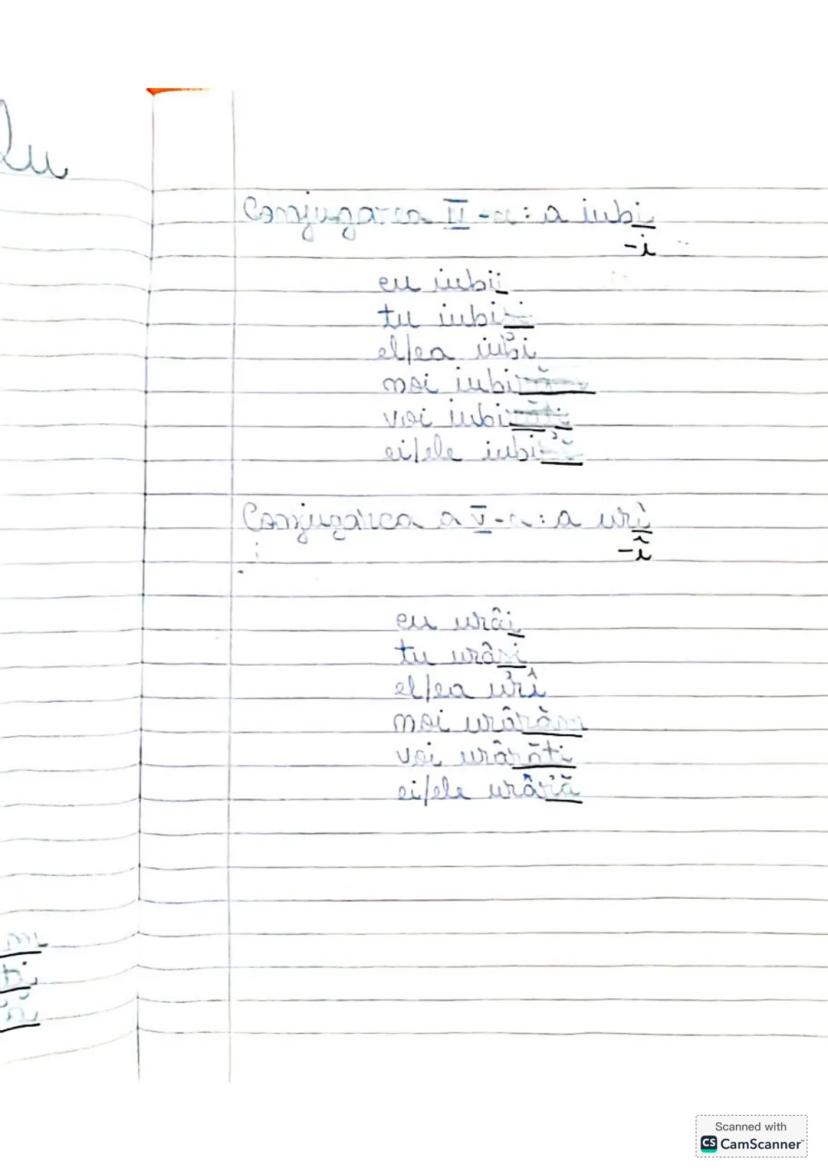 Conjugarea IV-a: a iubi
-i
eu iubii
tu iubiși
el/ea iubi
noi iubirăm
voi iubirăți
ei/ele iubiră
Conjugarea a V-a: a urî
-î
eu urâi
tu urâși
el/ea urî
noi urârăm
voi urârăți
ei/ele urâră
Scanned with
CS CamScanner